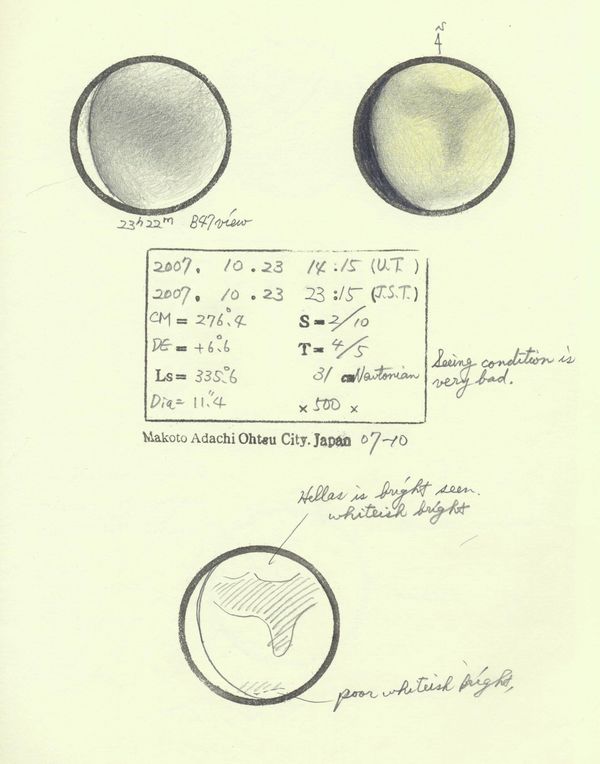 S̃
4
23h22m B47 view
2007. 10.23 14:15 (U.T.)
2007. 10.23 23:15 (J.S.T.)
CM = 276°.4 S = 2/10
DE = +6°.6 T = 4/5
Ls = 335°.6 31 cm Newtonian
Dia = 11".4 × 500 ×
Seeing condition is
very bad.
Makoto Adachi Ohtsu City. Japan 07-10
Hellas is bright seen.
whiteish bright
poor whiteish bright,